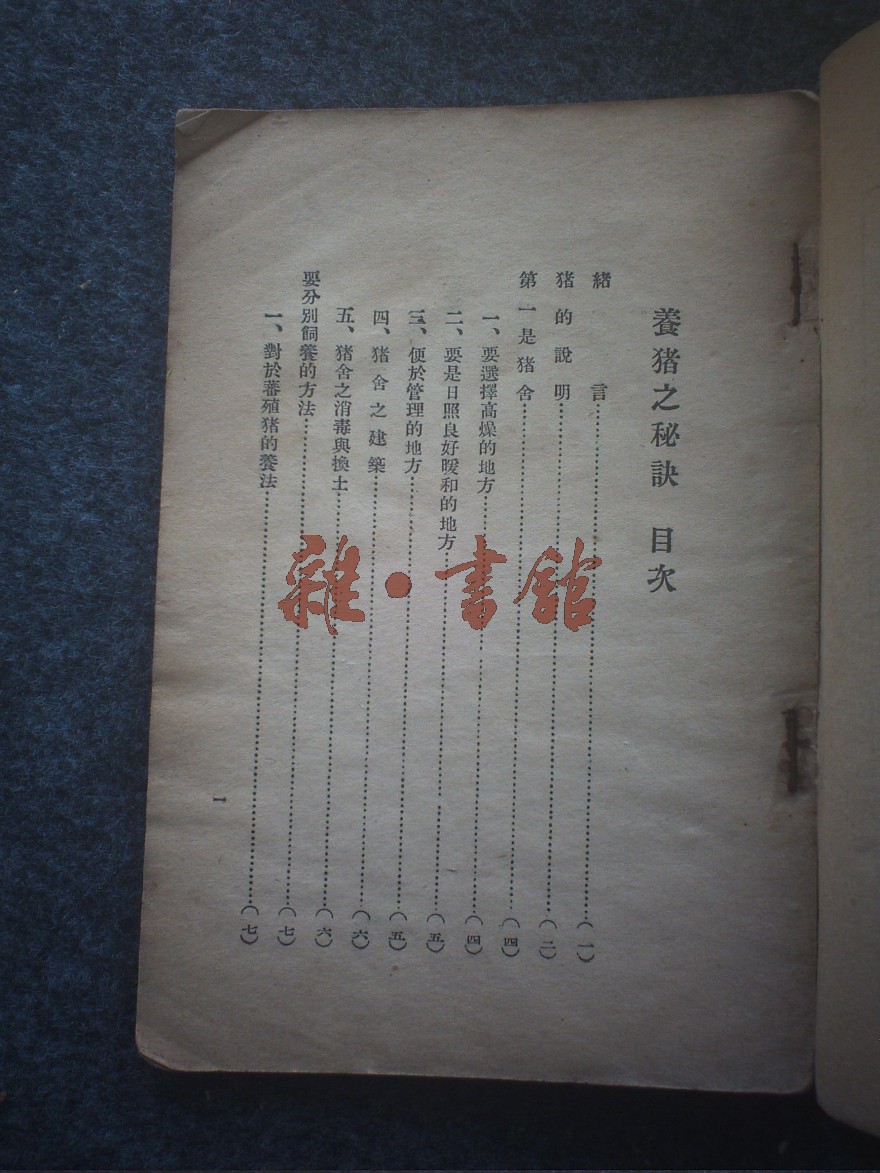 養猪之秘訣　目次
緒　　言…………（一）
猪的說明…………（二）
第一是猪舍…………（四）
一、要選擇高燥的地方…………（四）
二、要是日照良好暖和的地方…………（五）
三、便於管理的地方…………（五）
四、猪舍之建築…………（六）
五、猪舍之消毒與換土…………（六）
要分別飼養的方法…………（七）
一、對於蕃殖猪的養法…………（七）
一
雜・書館